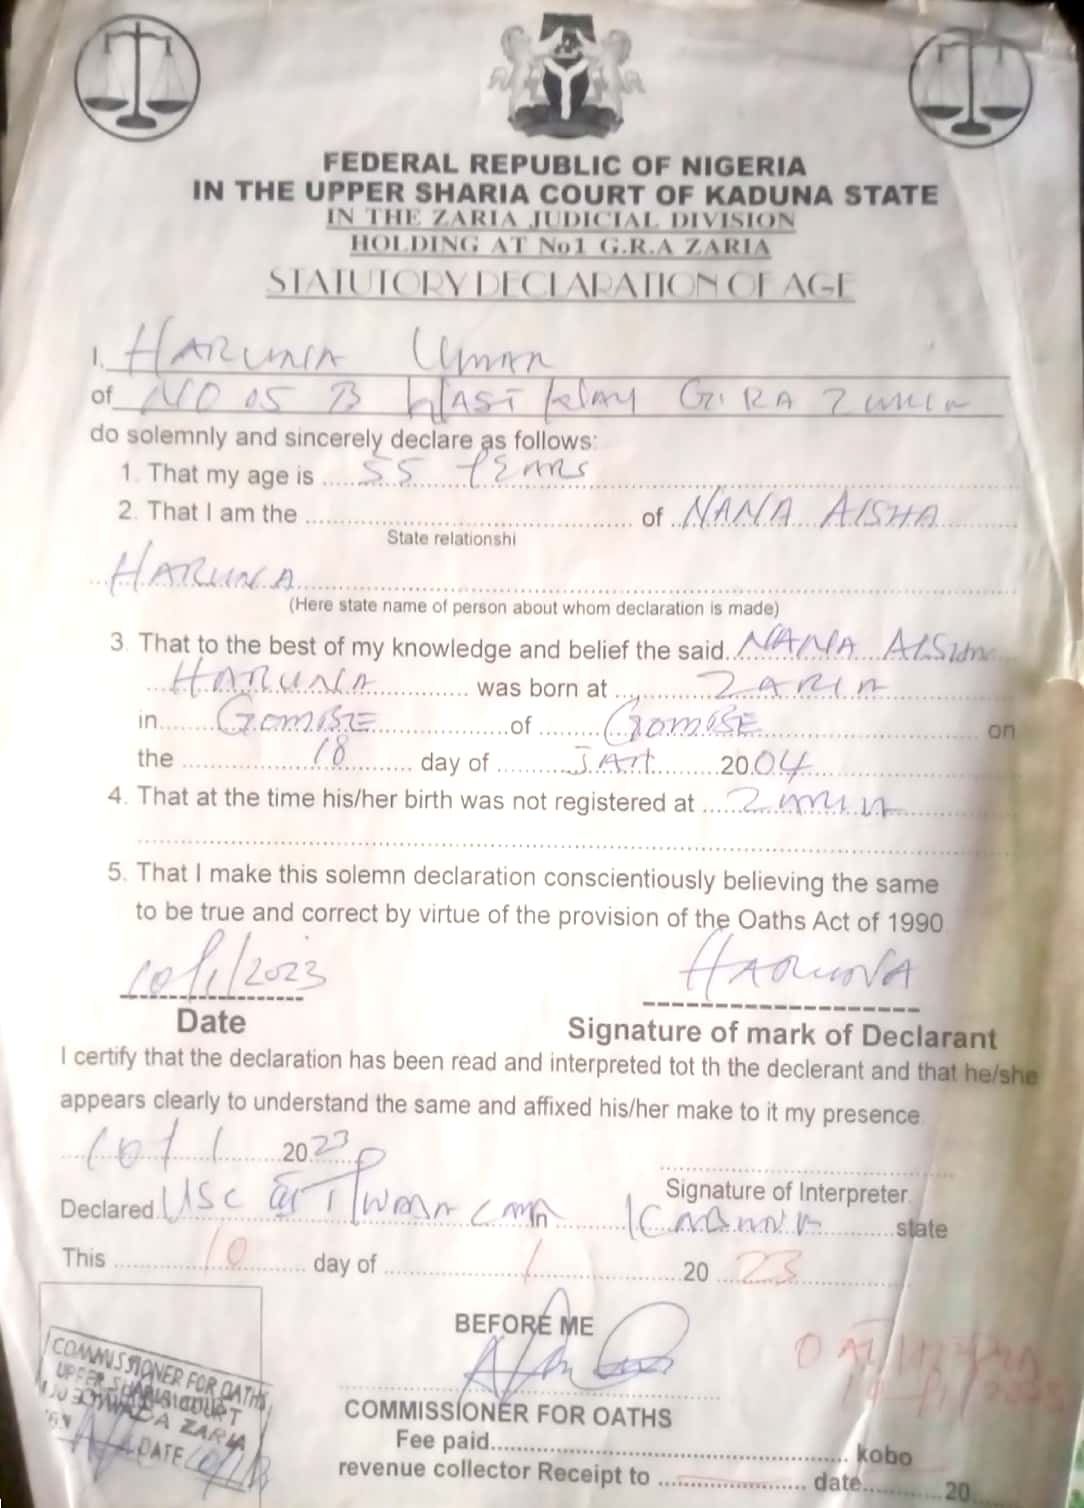 FEDERAL REPUBLIC OF NIGERIA
IN THE UPPER SHARIA COURT OF KADUNA STATE
IN THE ZARIA JUDICIAL DIVISION
HOLDING AT No1 G.R.A ZARIA
STATUTORY DECLARATION OF AGE
I. HARUNA Umar
of NO 05 B G.RA
do solemnly and sincerely declare as follows:
1. That my age is 55 YEARS
2. That I am the of NANA AISHA
State relationshi
HARUNA
(Here state name of person about whom declaration is made)
3. That to the best of my knowledge and belief the said NANA AISHA
HARUNA was born at ZARIA
in GOMBE of GOMBE on
the 18 day of JAN 2004
4. That at the time his/her birth was not registered at ZARIA
5. That I make this solemn declaration conscientiously believing the same
to be true and correct by virtue of the provision of the Oaths Act of 1990
10/1/2023 HARUNA
Date Signature of mark of Declarant
I certify that the declaration has been read and interpreted tot th the declerant and that he/she
appears clearly to understand the same and affixed his/her make to it my presence
10/1 2023
Signature of Interpreter
Declared USC in KADUNA state
This 10 day of 1 2023
BEFORE ME
COMMISSIONER FOR OATHS
UPPER SHARIA COURT
ZARIA
DATE
COMMISSIONER FOR OATHS
Fee paid kobo
revenue collector Receipt to date 20